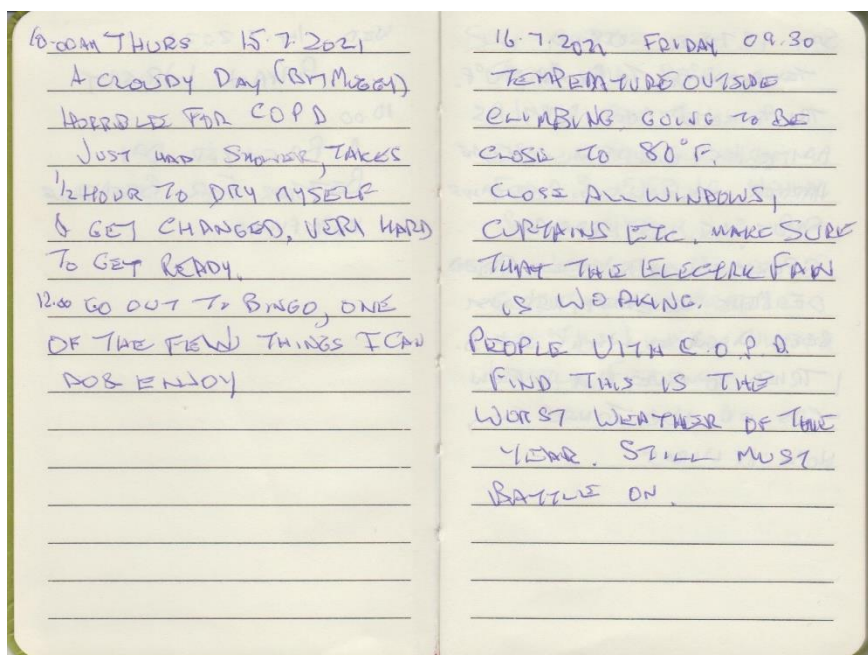 10.00AM THURS 15.7.2021
A CLOUDY DAY (BIT MUGGY)
HORRIBLE FOR COPD
JUST HAD SHOWER, TAKES
1/2 HOUR TO DRY MYSELF
& GET CHANGED, VERY HARD
TO GET READY.
12.00 GO OUT TO BINGO, ONE
OF THE FEW THINGS I CAN
DO & ENJOY
16.7.2021 FRIDAY 09.30
TEMPERATURE OUTSIDE
CLIMBING, GOING TO BE
CLOSE TO 80°F.
CLOSE ALL WINDOWS,
CURTAINS ETC. MAKE SURE
THAT THE ELECTRIC FAN
IS WORKING.
PEOPLE WITH C.O.P.D.
FIND THIS IS THE
WORST WEATHER OF THE
YEAR. STILL MUST
BATTLE ON.